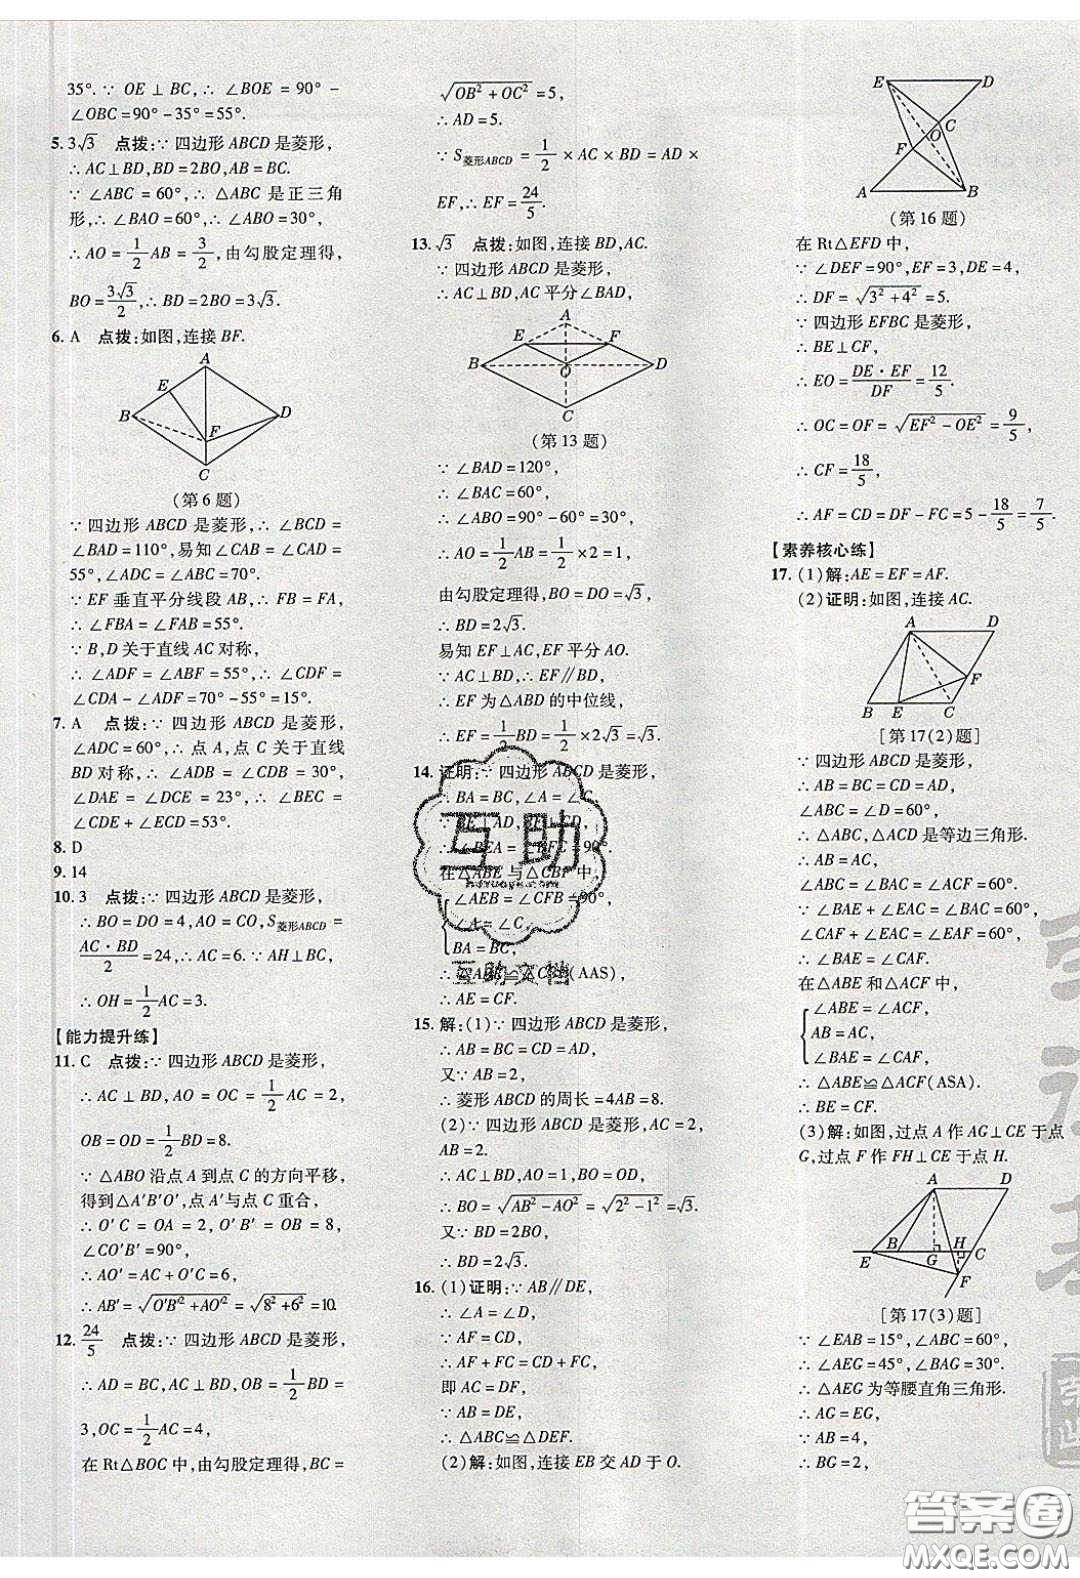 35°. ∵ OE ⊥ BC, ∴ ∠BOE = 90° −
∠OBC = 90° − 35° = 55°.
5. 3√3 点拨:∵ 四边形 ABCD 是菱形,
∴ AC⊥BD, BD = 2BO, AB = BC.
∵ ∠ABC = 60°, ∴ △ABC 是正三角
形, ∴ ∠BAO = 60°, ∴ ∠ABO = 30°,
∴ AO = 1/2 AB = 3/2, 由勾股定理得,
BO = 3√3/2, ∴ BD = 2BO = 3√3.
6. A 点拨:如图,连接 BF.
A
E
B
D
F
C
(第 6 题)
∵ 四边形 ABCD 是菱形, ∴ ∠BCD =
∠BAD = 110°, 易知 ∠CAB = ∠CAD =
55°, ∠ADC = ∠ABC = 70°.
∵ EF 垂直平分线段 AB, ∴ FB = FA,
∴ ∠FBA = ∠FAB = 55°.
∵ B, D 关于直线 AC 对称,
∴ ∠ADF = ∠ABF = 55°, ∴ ∠CDF =
∠CDA − ∠ADF = 70° − 55° = 15°.
7. A 点拨:∵ 四边形 ABCD 是菱形,
∠ADC = 60°, ∴ 点 A, 点 C 关于直线
BD 对称, ∴ ∠ADB = ∠CDB = 30°,
∠DAE = ∠DCE = 23°, ∴ ∠BEC =
∠CDE + ∠DCE = 53°.
8. D
9. 14
10. 3 点拨:∵ 四边形 ABCD 是菱形,
∴ BO = DO = 4, AO = CO, S菱形ABCD =
AC·BD/2 = 24, ∴ AC = 6. ∵ AH⊥BH,
∴ OH = 1/2 AC = 3.
【能力提升练】
11. C 点拨:∵ 四边形 ABCD 是菱形,
∴ AC ⊥ BD, AO = OC = 1/2 AC = 2,
OB = OD = 1/2 BD = 8.
∵ △ABO 沿点 A 到点 C 的方向平移,
得到 △A′B′O′, 点 A′与点 C 重合,
∴ O′C = OA = 2, O′B′ = OB = 8,
∠CO′B′ = 90°.
∴ AO′ = AC + O′C = 6,
∴ AB′ = √(O′B′² + AO′²) = √(8² + 6²) = 10.
12. 24/5 点拨:∵ 四边形 ABCD 是菱形,
∴ AD = BC, AC⊥BD, OB = 1/2 BD =
3, OC = 1/2 AC = 4,
在 Rt△BOC 中, 由勾股定理得, BC =
√(OB² + OC²) = 5,
∴ AD = 5.
∵ S菱形ABCD = 1/2 × AC × BD = AD ×
EF, ∴ EF = 24/5.
13. √3 点拨:如图,连接 BD, AC.
∵ 四边形 ABCD 是菱形,
∴ AC⊥BD, AC 平分∠BAD,
A
E
F
B
O
D
C
(第 13 题)
∵ ∠BAD = 120°,
∴ ∠BAC = 60°,
∴ ∠ABO = 90° − 60° = 30°,
∴ AO = 1/2 AB = 1/2 × 2 = 1.
由勾股定理得, BO = DO = √3,
∴ BD = 2√3.
易知 EF⊥AC, EF 平分 AO.
∵ AC⊥BD, ∴ EF∥BD,
∴ EF 为△ABD 的中位线,
∴ EF = 1/2 BD = 1/2 × 2√3 = √3.
14. 证明:∵ 四边形 ABCD 是菱形,
∴ BA = BC, ∠A = ∠C.
∵ BE⊥AD, BF⊥CD,
∴ ∠BEA = ∠BFC = 90°.
在△ABE 与△CBF 中,
∠AEB = ∠CFB = 90°,
∠A = ∠C,
BA = BC,
∴ △ABE≌△CBF(AAS),
∴ AE = CF.
15. 解:(1)∵ 四边形 ABCD 是菱形,
∴ AB = BC = CD = AD,
又∵ AB = 2,
∴ 菱形 ABCD 的周长 = 4AB = 8.
(2)∵ 四边形 ABCD 是菱形, AC = 2,
AB = 2,
∴ AC⊥BD, AO = 1,
∴ BO = √(AB² − AO²) = √(2² − 1²) = √3.
又∵ BD = 2BO,
∴ BD = 2√3.
16. (1)证明:∵ AB∥DE,
∴ ∠A = ∠D,
∵ AF = CD,
∴ AF + FC = CD + FC,
即 AC = DF,
∵ AB = DE,
∴ △ABC≌△DEF.
(2)解:如图, 连接 EB 交 AD 于 O.
E
D
C
O
F
A
B
(第 16 题)
在 Rt△EFD 中,
∵ ∠DEF = 90°, EF = 3, DE = 4,
∴ DF = √(3² + 4²) = 5.
∵ 四边形 EFBC 是菱形,
∴ BE⊥CF,
∴ EO = DE·EF/DF = 12/5.
∴ OC = OF = √(EF² − OE²) = 9/5,
∴ CF = 18/5,
∴ AF = CD = DF − FC = 5 − 18/5 = 7/5.
【素养核心练】
17. (1)解:AE = EF = AF.
(2)证明:如图,连接 AC.
A
D
F
B
E
C
[第 17(2)题]
∵ 四边形 ABCD 是菱形,
∴ AB = BC = CD = AD,
∠ABC = ∠D = 60°,
∴ △ABC, △ACD 是等边三角形.
∴ AB = AC,
∠BAC = ∠ACF = 60°.
∵ ∠BAE + ∠EAC = ∠BAC = 60°,
∠CAF + ∠EAC = ∠EAF = 60°,
∴ ∠BAE = ∠CAF.
在△ABE 和△ACF 中,
∠ABE = ∠ACF,
AB = AC,
∠BAE = ∠CAF,
∴ △ABE≌△ACF(ASA).
∴ BE = CF.
(3)解:如图,过点 A 作 AG⊥CE 于点
G, 过点 F 作 FH⊥CE 于点 H.
A
D
B
H
E
G
C
F
[第 17(3)题]
∵ ∠EAB = 15°, ∠ABC = 60°,
∴ ∠AEG = 45°, ∠BAG = 30°.
∴ △AEG 为等腰直角三角形.
∴ AG = EG,
∵ AB = 4,
∴ BG = 2,
互助
hdzuoye.com
互助文档
答案圈
MXQE.COM